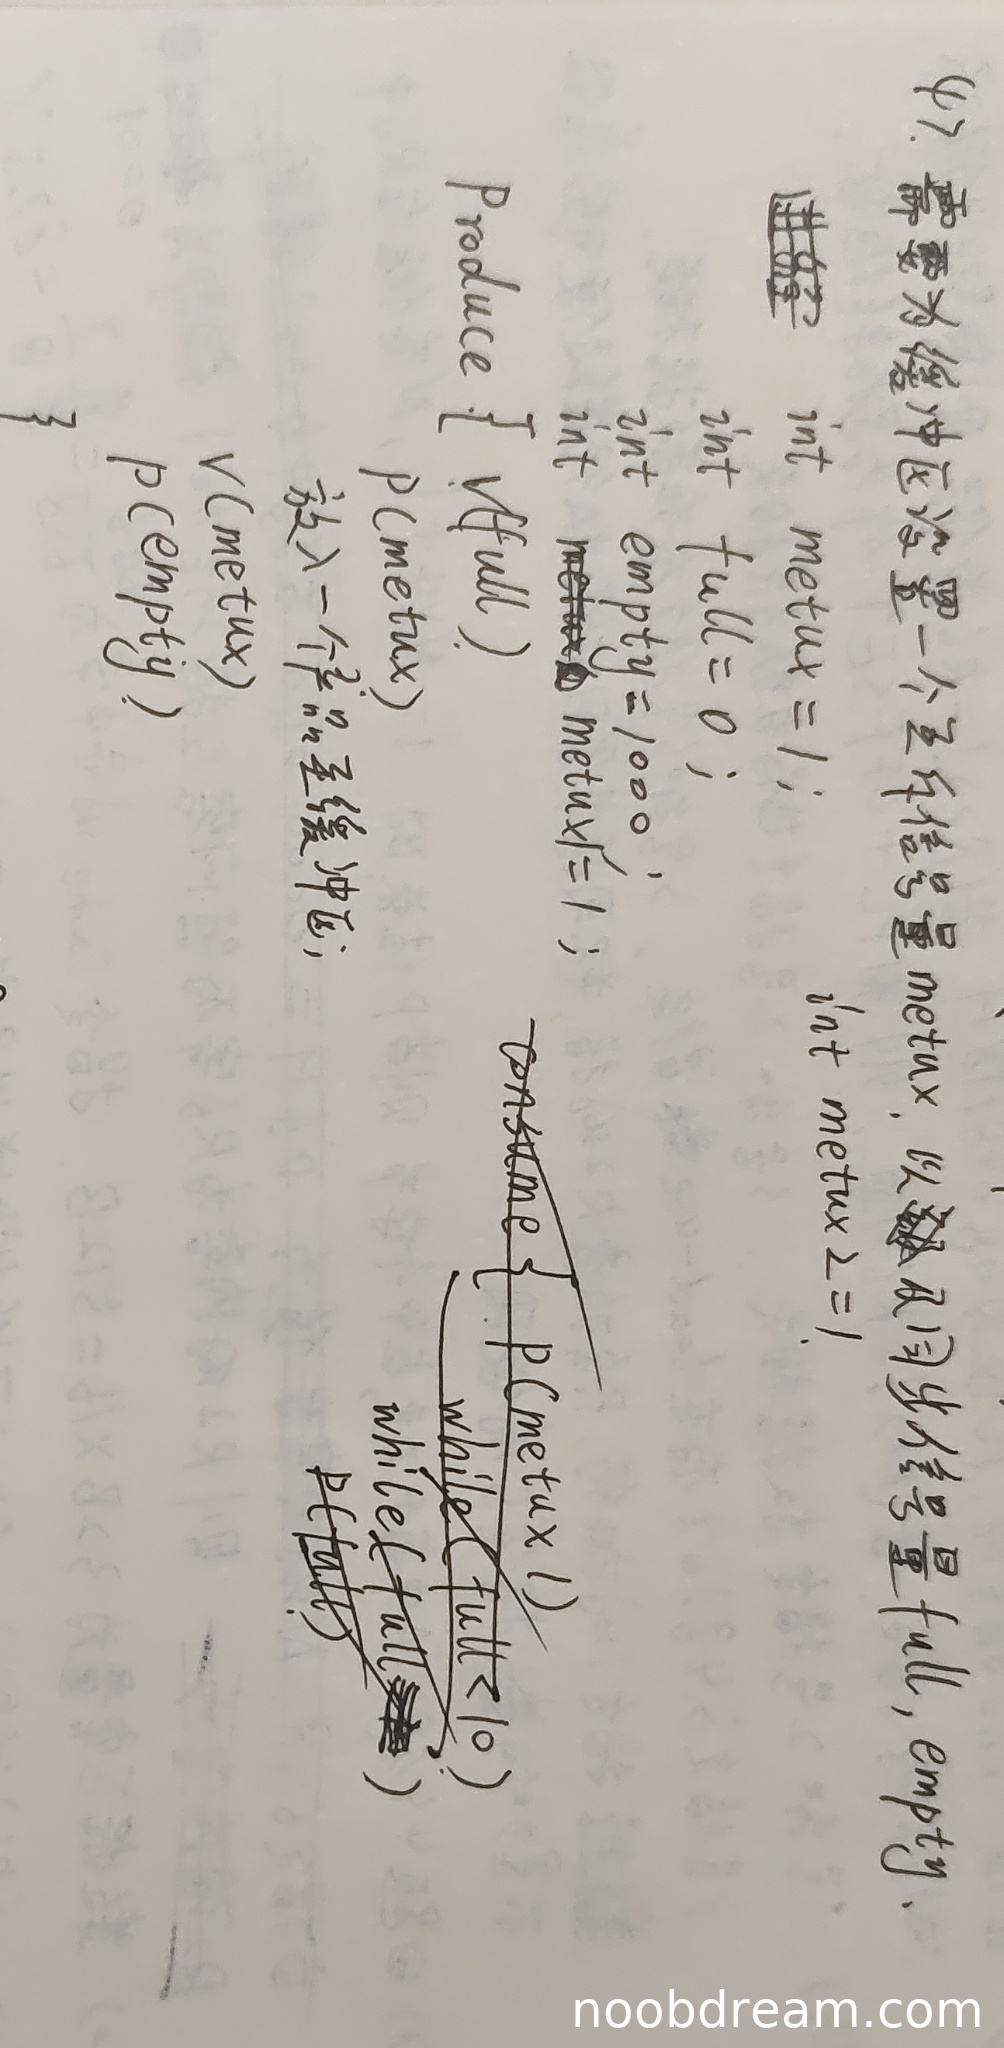 47. 需要为缓冲区设置一个互斥信号量metux, 以及同步信号量full, empty.
int metux = 1;
int metux2=1.
int full = 0;
int empty = 1000;
int metux1 = 1;
Produce { V(full)
P(metux)
放入一个产品至缓冲区;
V(metux)
P(empty)
}
consume { P(metux1)
while(full<10)
while(full)
P(full)
noobdream.com